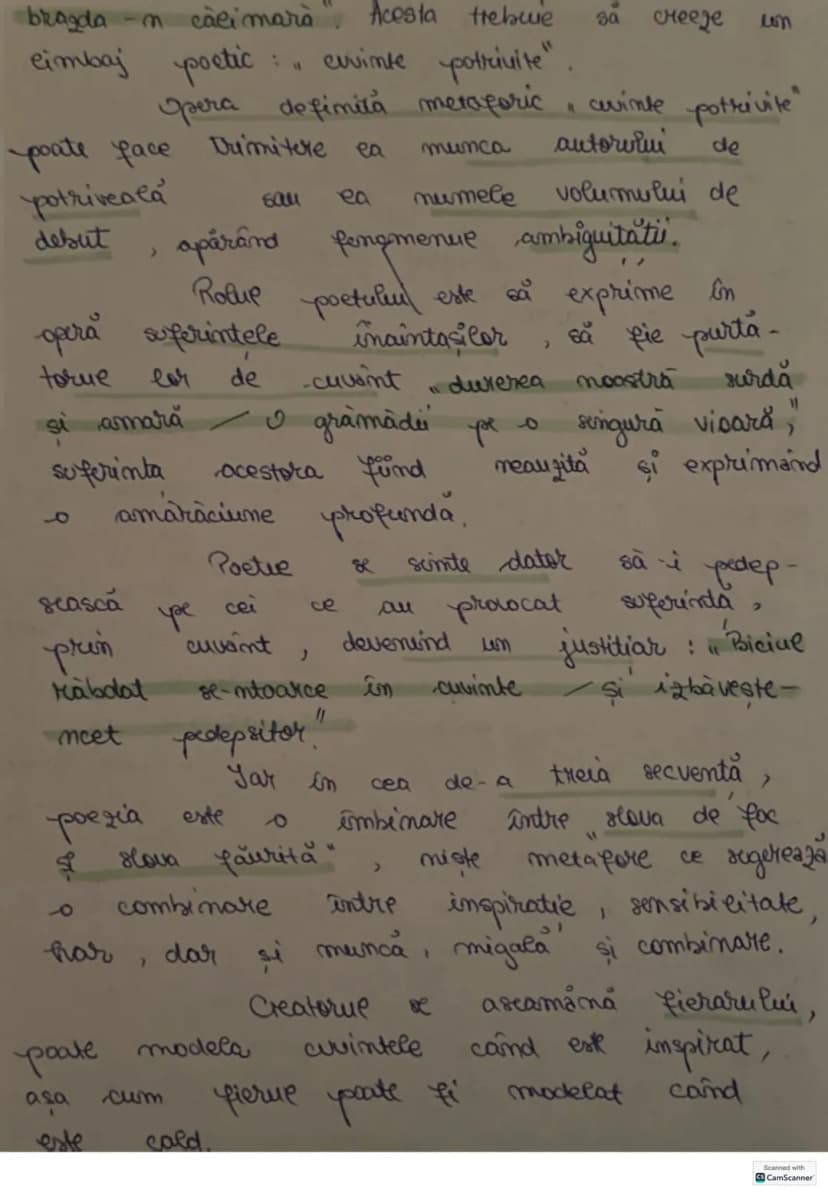 brazda-n călimară". Acesta trebuie să creeze un
limbaj poetic : „ cuvinte potrivite".
Opera definită metaforic „ cuvinte potrivite"
poate face trimitere la munca autorului de
potriveală sau la numele volumului de
debut , apărând fenomenul ambiguității.
Rolul poetului este să exprime în
operă suferințele înaintașilor , să fie purtă-
torul lor de cuvânt „ durerea noastră surdă
și amară / O grămădii pe o singură vioară",
suferința acestora fiind neauzită și exprimând
o amărăciune profundă.
Poetul se simte dator să-i pedep-
sească pe cei ce au provocat suferință ,
prin cuvânt , devenind un justițiar : „ Biciul
răbdat se-ntoarce în cuvinte / și izbăvește-
ncet pedepsitor."
Iar în cea de-a treia secvență ,
poezia este o îmbinare între „slova de foc
și slova făurită" , niște metafore ce sugerează
o combinare între inspirație , sensibilitate,
har , dar și muncă , migală și combinare.
Creatorul se aseamănă fierarului,
poate modela cuvintele când este inspirat,
așa cum fierul poate fi modelat când
este cald.
Scanned with
CS CamScanner